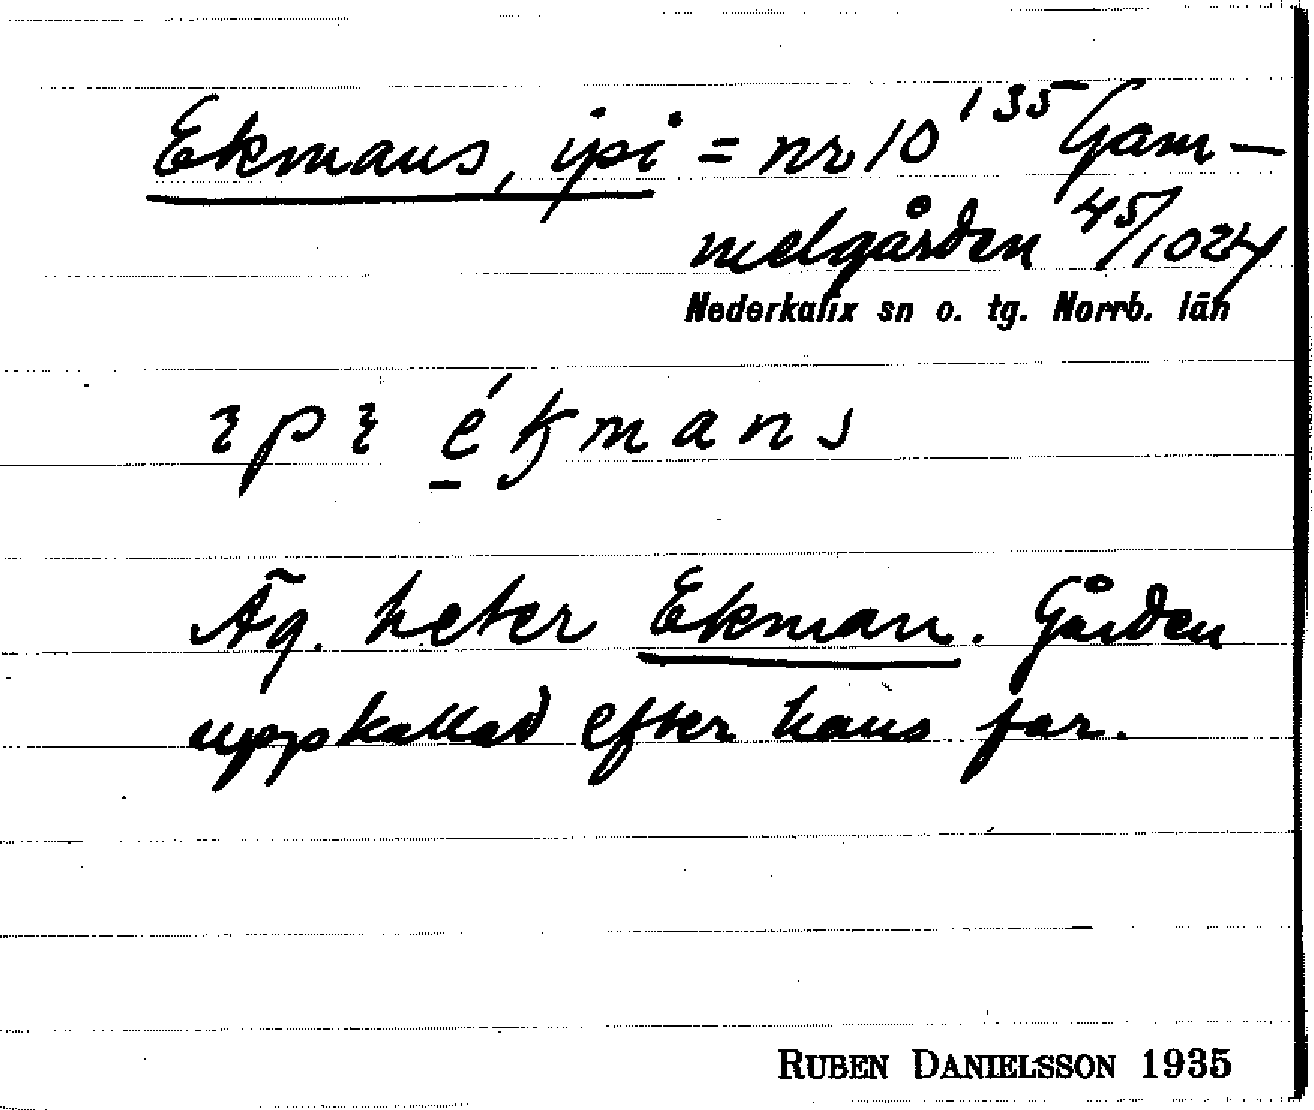 Ekmans, ipi = nr 10¹³⁵ Gam-
melgården ⁴⁵/1024
Nederkalix sn o. tg. Norrb. län
ɩpɩ ékmans
Äg. heter Ekman. Gården
uppkallad efter hans far.
RUBEN DANIELSSON 1935